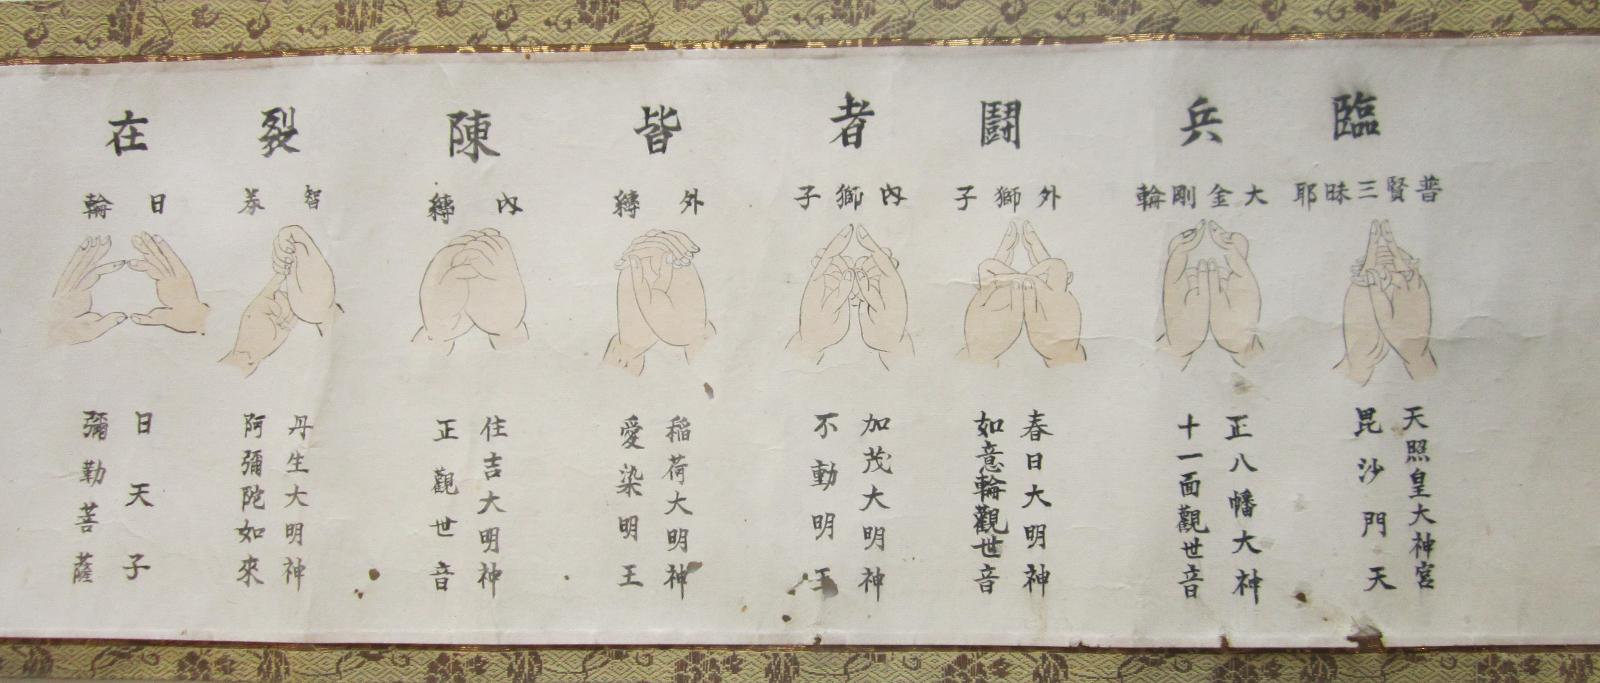 臨
普賢三昧耶
天照皇大神宮
毘沙門天
兵
大金剛輪
正八幡大神
十一面觀世音
鬪
外獅子
春日大明神
如意輪觀世音
者
內獅子
加茂大明神
不動明王
皆
外縛
稲荷大明神
愛染明王
陳
內縛
住吉大明神
正觀世音
裂
智拳
丹生大明神
阿彌陀如來
在
日輪
日天子
彌勒菩薩